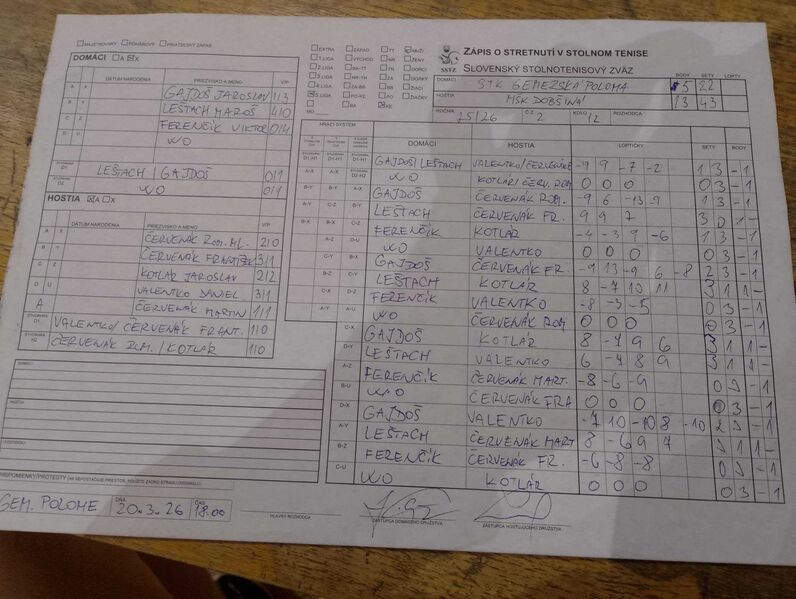 MAJSTROVSKÝ POHÁROVÝ PRIATEĽSKÝ ZÁPAS
DOMÁCI A X
DÁTUM NARODENIA PRIEZVISKO A MENO V/P
A X GAJDOŠ JAROSLAV 1/3
B Y LEŠTACH MAROŠ 4/0
C Z FERENČÍK VIKTOR 0/4
WO
ŠTVORHRA D1 LEŠTACH / GAJDOŠ 0/1
ŠTVORHRA D2 WO 0/1
HOSTIA A X
DÁTUM NARODENIA PRIEZVISKO A MENO V/P
A X ČERVENÁK ROM. ML. 2/0
B Y ČERVENÁK FRANTIŠEK 3/1
C Z KOTLÁR JAROSLAV 2/2
D U VALENTKO DANIEL 3/1
A ČERVENÁK MARTIN 1/1
ŠTVORHRA H1 VALENTKO / ČERVENÁK FRANT. 1/0
ŠTVORHRA H2 ČERVENÁK ROM. / KOTLÁR 1/0
DOMÁCI:
HOSTIA:
PRIPOMIENKY/PROTESTY (AK NEPOSTAČUJE PRIESTOR, POUŽITE ZADNÚ STRANU/ORIGINÁL)
GEM. POLOME DŇA 20.3.26 ČAS 18.00
HLAVNÝ ROZHODCA
ZÁSTUPCA DOMÁCEHO DRUŽSTVA
ZÁSTUPCA HOSŤUJÚCEHO DRUŽSTVA
EXTRA ZÁPAD TT MUŽI
1.LIGA VÝCHOD NR ŽENY
2.LIGA BA-TT TN DORCI
3.LIGA NR-TN ZA DORKY
4.LIGA ZA-BB BB ŽIACI
5.LIGA PO-KE PO ŽIAČKY
MO BA KE
SSTZ
ZÁPIS O STRETNUTÍ V STOLNOM TENISE
SLOVENSKÝ STOLNOTENISOVÝ ZVÄZ
DOMÁCI STK GEMERSKÁ POLOMA
BODY SETY LOPTY
5 22
HOSTIA MSK DOBŠINÁ
13 43
ROČNÍK 25/26 Č.Z. 2 KOLO 12 ROZHODCA
HRACÍ SYSTÉM DOMÁCI HOSTIA LOPTIČKY SETY BODY
GAJDOŠ / LEŠTACH VALENTKO / ČERVENÁK -9 9 -7 -2 1 3 -1
WO KOTLÁR / ČERV. ROM 0 0 0 0 3 -1
GAJDOŠ ČERVENÁK ROM. -9 6 -13 -9 1 3 -1
LEŠTACH ČERVENÁK FR. 9 9 7 3 0 1 -
FERENČÍK KOTLÁR -4 -3 9 -6 1 3 -1
WO VALENTKO 0 0 0 0 3 -1
GAJDOŠ ČERVENÁK FR. -9 13 -9 6 -8 2 3 -1
LEŠTACH KOTLÁR 8 -7 10 11 3 1 1 -
FERENČÍK VALENTKO -8 -3 -5 0 3 -1
WO ČERVENÁK ROM 0 0 0 0 3 -1
GAJDOŠ KOTLÁR 8 -7 9 6 3 1 1 -
LEŠTACH VALENTKO 6 -7 8 9 3 1 1 -
FERENČÍK ČERVENÁK MART. -8 -6 -9 0 3 -1
WO ČERVENÁK FRA 0 0 0 0 3 -1
GAJDOŠ VALENTKO -7 10 -10 8 -10 2 3 -1
LEŠTACH ČERVENÁK MART 8 -6 9 7 3 1 1 -
FERENČÍK ČERVENÁK FR. -6 -8 -8 0 3 -1
WO KOTLÁR 0 0 0 0 3 -1